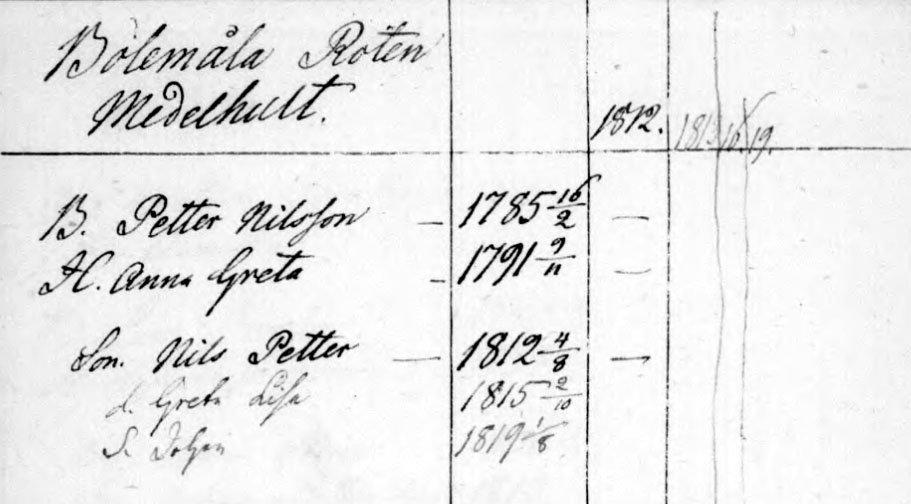 Bölemåla Roten
Medelhult.
1812. 1813 16. 19.
B. Petter Nilsson — 1785 16/2 —
H. Anna Greta — 1791 9/11 —
Son. Nils Petter — 1812 4/8 —
d. Greta Lisa 1815 2/10
S. Johan 1819 1/8